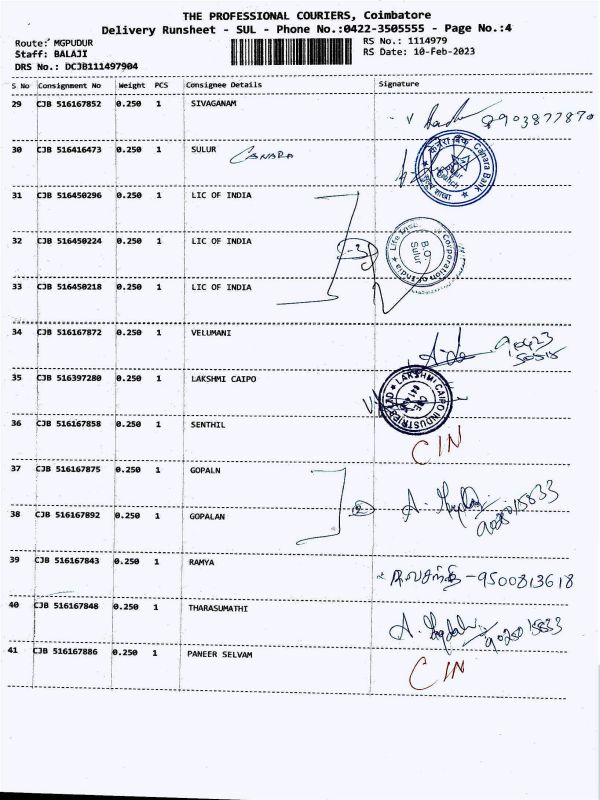 THE PROFESSIONAL COURIERS, Coimbatore
Delivery Runsheet - SUL - Phone No.:0422-3505555 - Page No.:4
Route: MGPUDUR
RS No.: 1114979
Staff: BALAJI
RS Date: 10-Feb-2023
DRS No.: DCJB111497904
S No Consignment No Weight PCS Consignee Details Signature
29 CJB 516167852 0.250 1 SIVAGANAM
8903877870
30 CJB 516416473 0.250 1 SULUR CANARA
केनरा बैंक Canara Bank
31 CJB 516450296 0.250 1 LIC OF INDIA
32 CJB 516450224 0.250 1 LIC OF INDIA
Life Insurance Corporation of India
B.O.
Sulur
33 CJB 516450218 0.250 1 LIC OF INDIA
34 CJB 516167872 0.250 1 VELUMANI
35 CJB 516397280 0.250 1 LAKSHMI CAIPO
LAKSHMI CAIPO INDUSTRIES LTD
36 CJB 516167858 0.250 1 SENTHIL
CIN
37 CJB 516167875 0.250 1 GOPALN
38 CJB 516167892 0.250 1 GOPALAN
2
39 CJB 516167843 0.250 1 RAMYA
-9500813618
40 CJB 516167848 0.250 1 THARASUMATHI
9025015833
41 CJB 516167886 0.250 1 PANEER SELVAM
CIN